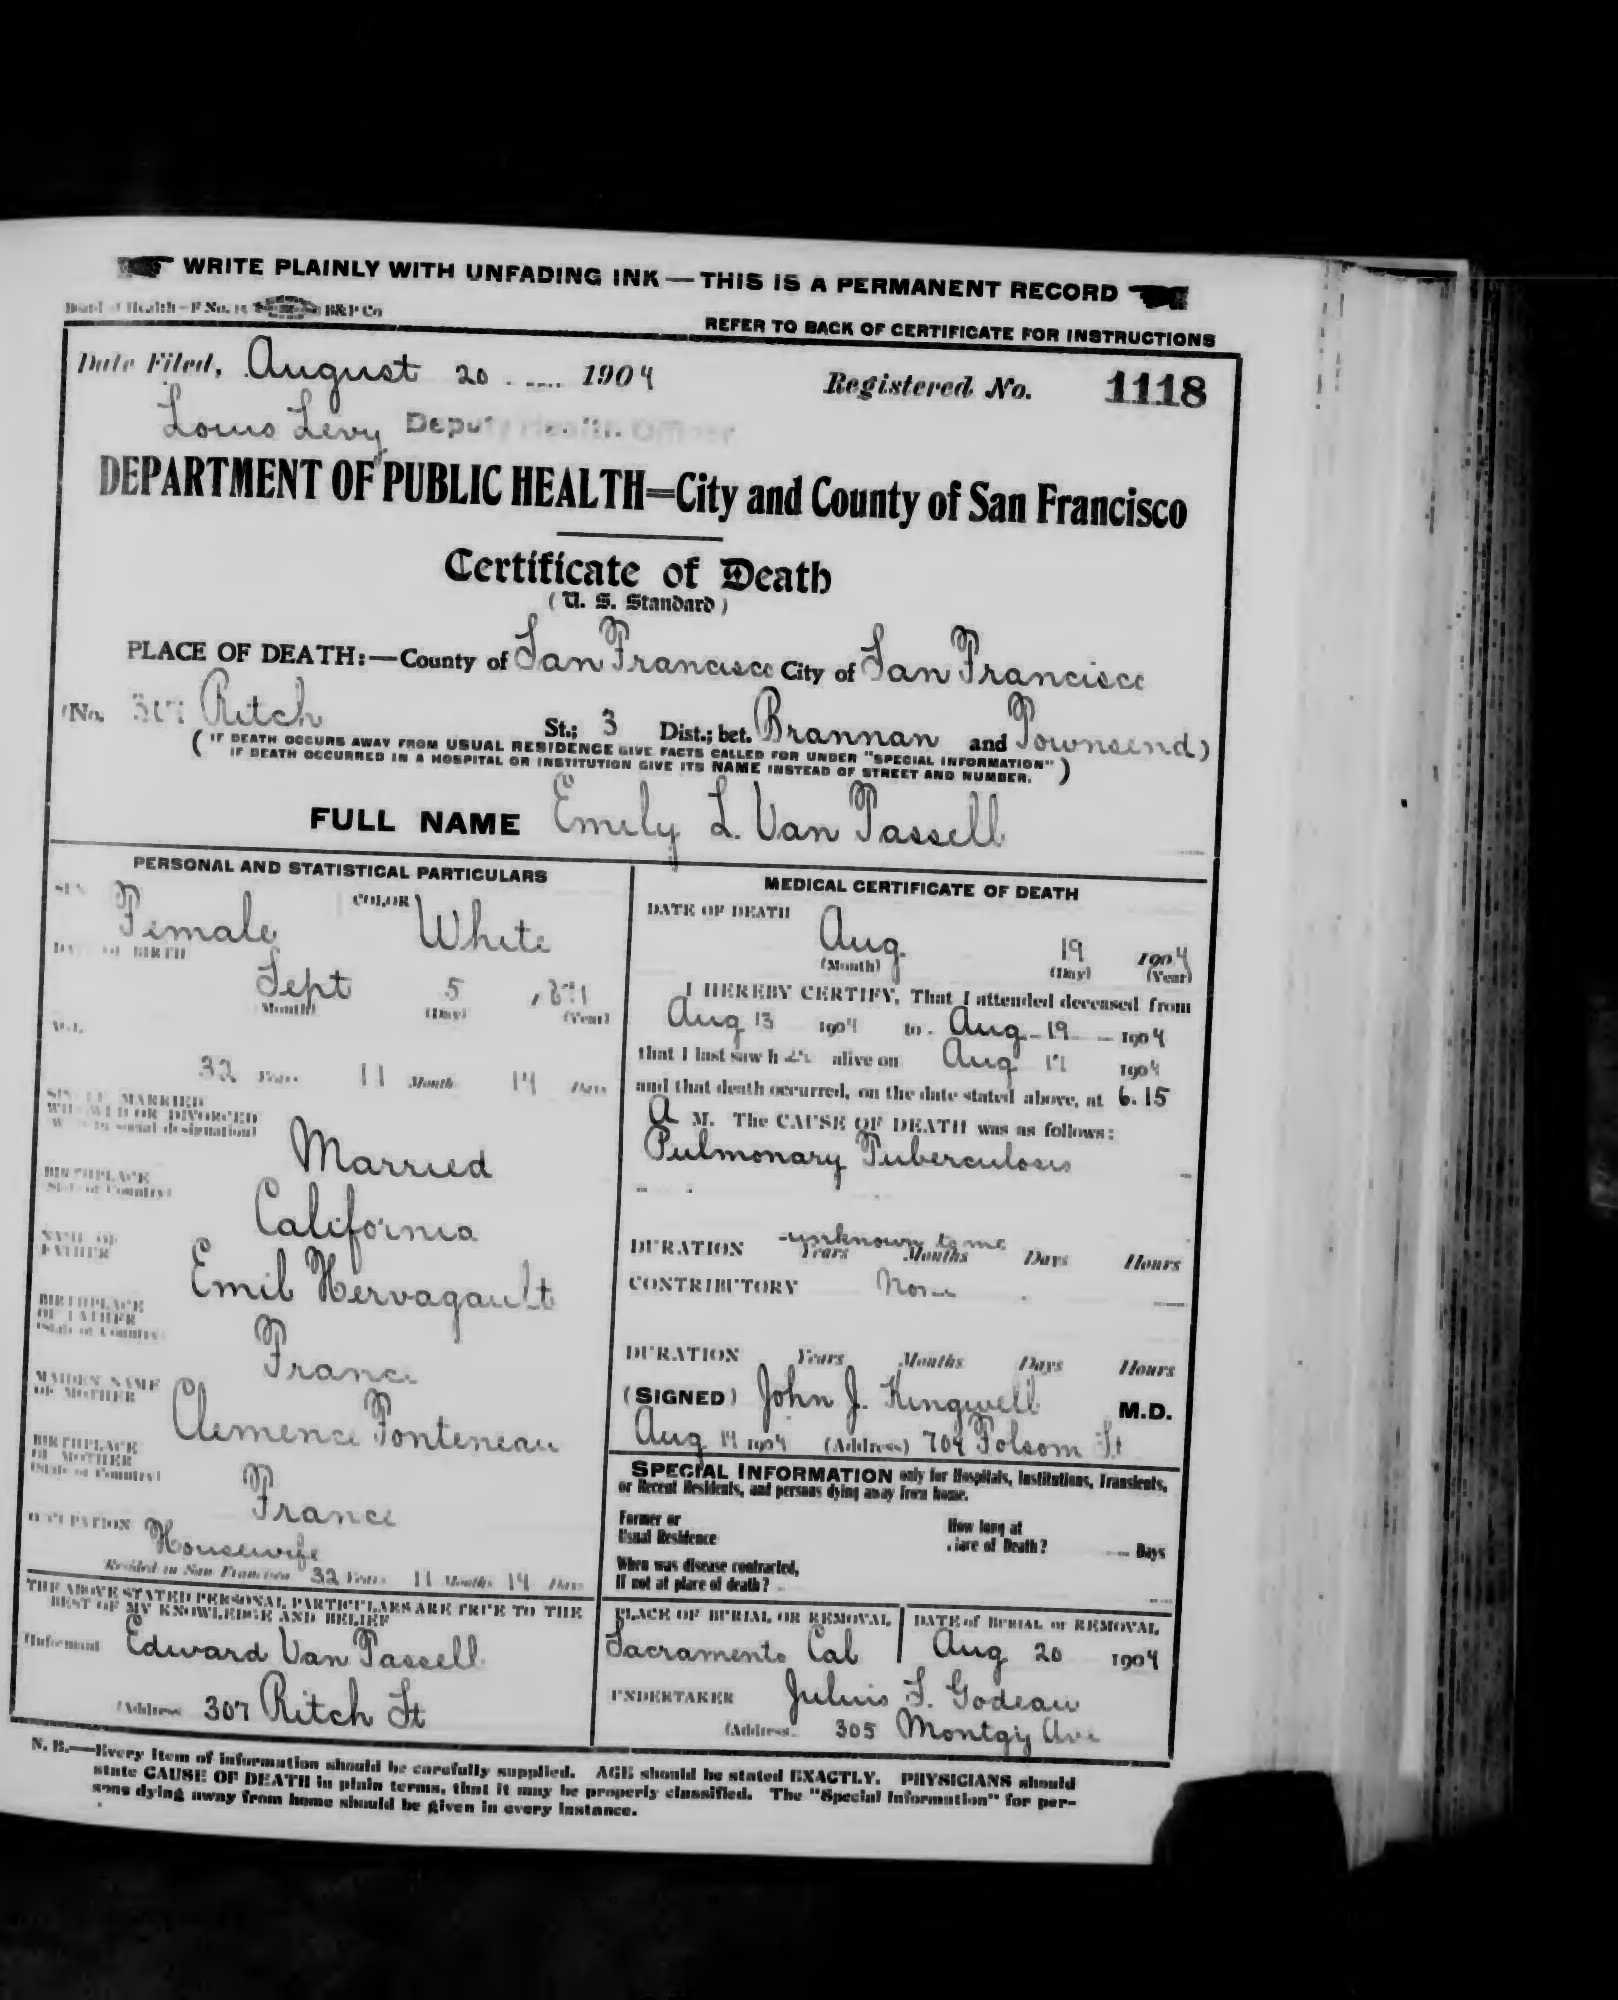 WRITE PLAINLY WITH UNFADING INK — THIS IS A PERMANENT RECORD
Board of Health—F No. B&P Co
REFER TO BACK OF CERTIFICATE FOR INSTRUCTIONS
Date Filed, August 20 1904 Registered No. 1118
Louis Levy Deputy Health Officer
DEPARTMENT OF PUBLIC HEALTH=City and County of San Francisco
Certificate of Death
(U. S. Standard)
PLACE OF DEATH:—County of San Francisco City of San Francisco
(No. 307 Ritch St.; 3 Dist.; bet. Brannan and Townsend)
(IF DEATH OCCURS AWAY FROM USUAL RESIDENCE GIVE FACTS CALLED FOR UNDER "SPECIAL INFORMATION"
IF DEATH OCCURRED IN A HOSPITAL OR INSTITUTION GIVE ITS NAME INSTEAD OF STREET AND NUMBER.)
FULL NAME Emily L. Van Tassell
PERSONAL AND STATISTICAL PARTICULARS
SEX Female COLOR White
DATE OF BIRTH
Sept 5 1871
(Month) (Day) (Year)
AGE
32 Years 11 Months 14 Days
SINGLE, MARRIED
WIDOWED OR DIVORCED
(Write in social designation)
Married
BIRTHPLACE
(State or Country)
California
NAME OF
FATHER
Emil Hervagault
BIRTHPLACE
OF FATHER
(State or Country)
France
MAIDEN NAME
OF MOTHER
Clemence Fonteneau
BIRTHPLACE
OF MOTHER
(State or Country)
France
OCCUPATION Housewife
Resided in San Francisco 32 Years 11 Months 14 Days
THE ABOVE STATED PERSONAL PARTICULARS ARE TRUE TO THE
BEST OF MY KNOWLEDGE AND BELIEF
(Informant Edward Van Tassell
(Address 307 Ritch St
MEDICAL CERTIFICATE OF DEATH
DATE OF DEATH
Aug. 19 1904
(Month) (Day) (Year)
I HEREBY CERTIFY, That I attended deceased from
Aug 13 1904 to Aug 19 1904
that I last saw h er alive on Aug 17 1904
and that death occurred, on the date stated above, at 6.15
A M. The CAUSE OF DEATH was as follows:
Pulmonary Tuberculosis
DURATION unknown to me Years Months Days Hours
CONTRIBUTORY None
DURATION Years Months Days Hours
(SIGNED) John J. Kingwell M.D.
Aug 19 1904 (Address) 704 Folsom St
SPECIAL INFORMATION only for Hospitals, Institutions, Transients,
or Recent Residents, and persons dying away from home.
Former or
Usual Residence
How long at
Place of Death? Days
When was disease contracted,
If not at place of death?
PLACE OF BURIAL OR REMOVAL
Sacramento Cal
DATE of BURIAL or REMOVAL
Aug 20 1904
UNDERTAKER Julius S. Godeau
(Address 305 Montgy Ave
N. B.—Every item of information should be carefully supplied. AGE should be stated EXACTLY. PHYSICIANS should
state CAUSE OF DEATH in plain terms, that it may be properly classified. The "Special Information" for per-
sons dying away from home should be given in every instance.